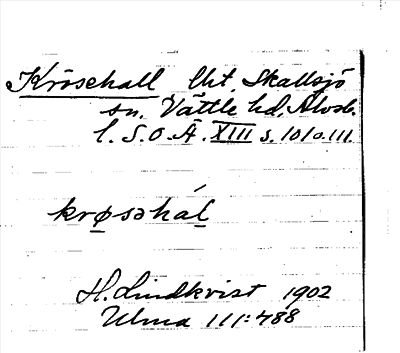 Krösehall lht, Skallsjö
sn. Vättle hd, Älvsb.
l. S.O.Ä. XIII s. 1010.111
krøsəhál
H. Lindkvist 1902
Ulma 111:488